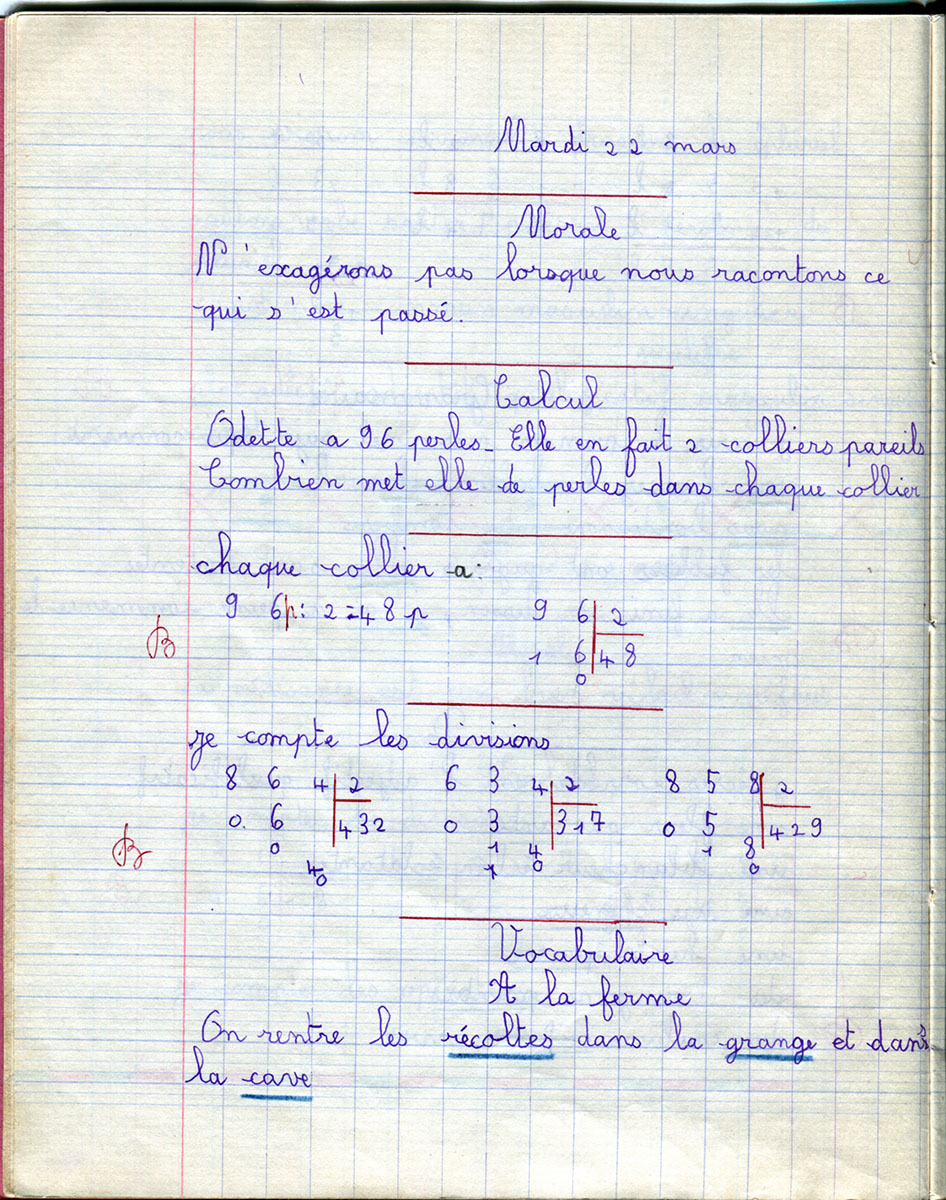 Mardi 22 mars
Morale
N'exagérons pas lorsque nous racontons ce
qui s'est passé.
Calcul
Odette a 96 perles. Elle en fait 2 colliers pareils
Combien met elle de perles dans chaque collier
chaque collier a:
9 6p: 2 = 48 p 9 6 2
B 1 6 4 8
0
je compte les divisions
8 6 4 2 6 3 4 2 8 5 8 2
0. 6 432 0 3 317 0 5 429
B 0 1 4 1 8
40 1 0 0
Vocabulaire
A la ferme
On rentre les récoltes dans la grange et dans
la cave